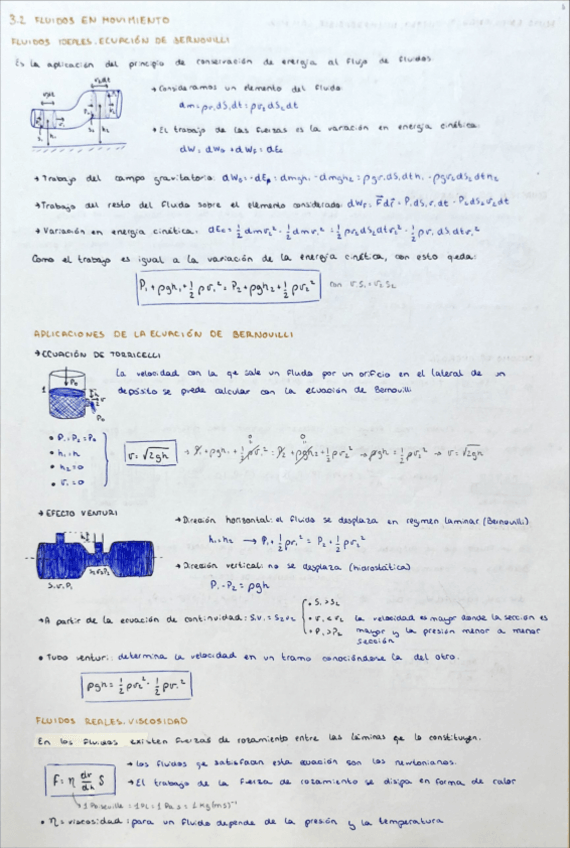 3.2 FLUIDOS EN MOVIMIENTO
FLUIDOS IDEALES. ECUACIÓN DE BERNOUILLI
Es la aplicación del principio de conservación de energía al flujo de fluidos.
→ Consideramos un elemento del fluido
dm = ρv₁dS₁dt = ρv₂dS₂dt
→ El trabajo de las fuerzas es la variación en energía cinética.
→ Trabajo del campo gravitatorio:
→ Trabajo del resto del fluido sobre el elemento considerado:
→ Variación en energía cinética:
Como el trabajo es igual a la variación de la energía cinética, con esto queda:
P₁ + ρgh₁ + ½ρv₁² = P₂ + ρgh₂ + ½ρv₂² con v₁S₁ = v₂S₂
APLICACIONES DE LA ECUACIÓN DE BERNOUILLI
→ ECUACIÓN DE TORRICELLI
La velocidad con la qe sale un fluido por un orificio en el lateral de un
depósito se puede calcular con la ecuación de Bernouilli
• P₁ = P₂ = P₀
• h₁ = h
• h₂ = 0
• v₁ = 0
v = √2gh → P₁ + ρgh₁ + ½ρv₁² = P₂ + ρgh₂ + ½ρv₂² → ρgh = ½ρv₂² → v = √2gh
→ EFECTO VENTURI
→ Direción horizontal: el fluido se desplaza en regimen laminar (Bernouilli)
h₁ = h₂ → P₁ + ½ρv₁² = P₂ + ½ρv₂²
→ Direción vertical: no se desplaza (hidrostática)
P₁ - P₂ = ρgh
→ A partir de la ecuación de continuidad: S₁v₁ = S₂v₂
• S₁ > S₂
• v₁ < v₂
• P₁ > P₂
la velocidad es mayor donde la sección es
mayor y la presión menor a menor
sección
• Tubo venturi: determina la velocidad en un tramo conociéndose la del otro.
ρgh = ½ρv₂² - ½ρv₁²
FLUIDOS REALES. VISCOSIDAD
En los fluidos existen fuerzas de rozamiento entre las láminas qe lo constituyen.
F = η dv/dh S
→ los fluidos qe satisfacen esta ecuación son los newtonianos.
→ El trabajo de la fuerza de rozamiento se disipa en forma de calor
• η = viscosidad: para un fluido depende de la presión y la temperatura